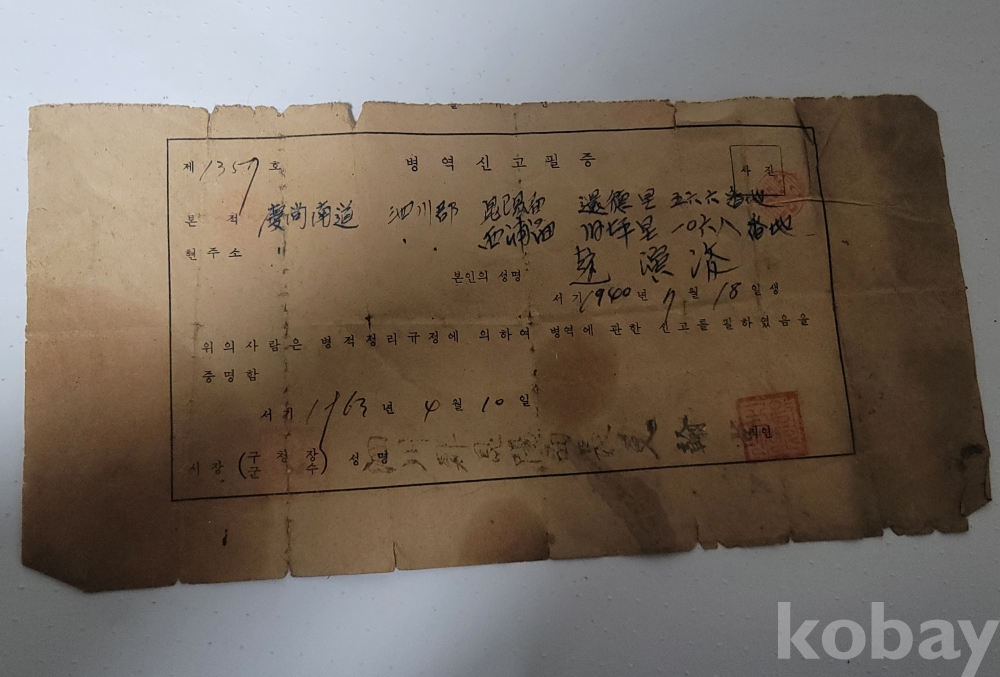 제 1357 호 병역신고필증
사진
본적 慶尚南道 泗川郡 昆陽面 還德里 五六六番地
현주소 〃 〃 西浦面 旧坪里 一〇六八番地
본인의 성명 趙 濱 济
서기 1940 년 7 월 18 일생
위의 사람은 병적정리규정에 의하여 병역에 관한 신고를 필하였음을
증명함
서기 1963 년 4 월 10 일
시장 (구청장 군수) 성명 泗川郡昆陽面長
직인
kobay